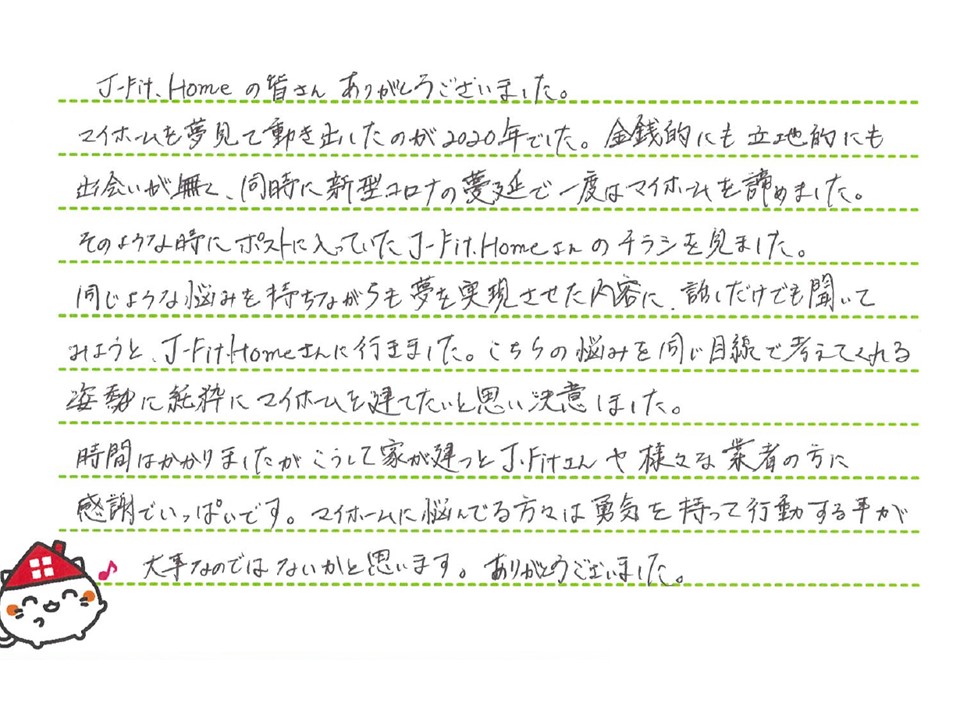 J-Fit.Homeの皆さんありがとうございました。
マイホームを夢見て動き出したのが2020年でした。金銭的にも立地的にも
出会いが無く、同時に新型コロナの蔓延で一度はマイホームを諦めました。
そのような時にポストに入っていたJ-Fit.Homeさんのチラシを見ました。
同じような悩みを持ちながらも夢を実現させた内容に、話しだけでも聞いて
みようと、J-Fit.Homeさんに行きました。こちらの悩みを同じ目線で考えてくれる
姿勢に純粋にマイホームを建てたいと思い決意しました。
時間はかかりましたがこうして家が建つとJ-Fitさんや様々な業者の方に
感謝でいっぱいです。マイホームに悩んでる方々は勇気を持って行動する事が
大事なのではないかと思います。ありがとうございました。